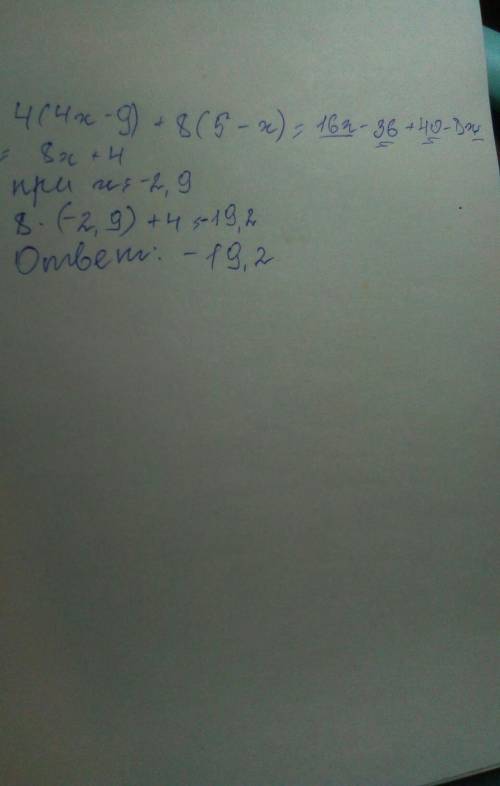 4(4x-9)+8(5-x)=16x-36+40-8x
= 8x+4
при x=-2,9
8·(-2,9)+4=-19,2
Ответ: -19,2